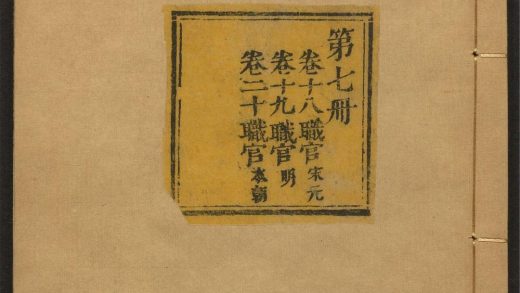 第七冊
卷十八職官宋元
卷十九職官明
卷二十職官本朝